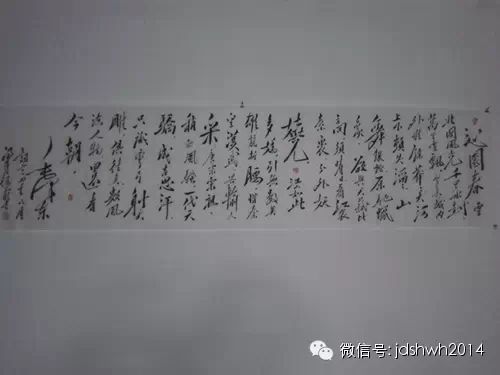 沁园春 雪
北国风光千里冰封
万里雪飘望长城内
外惟余莽莽大河
上下顿失滔滔山
舞银蛇原驰蜡
象欲与天公试比
高须晴日看红装
素裹分外妖
娆江山如此
多娇引无数英
雄竞折腰惜秦
皇汉武略输文
采唐宗宋祖
稍逊风骚一代天
骄成吉思汗
只识弯弓射大
雕俱往矣数风
流人物还看
今朝
毛泽东
微信号: jdshwh2014